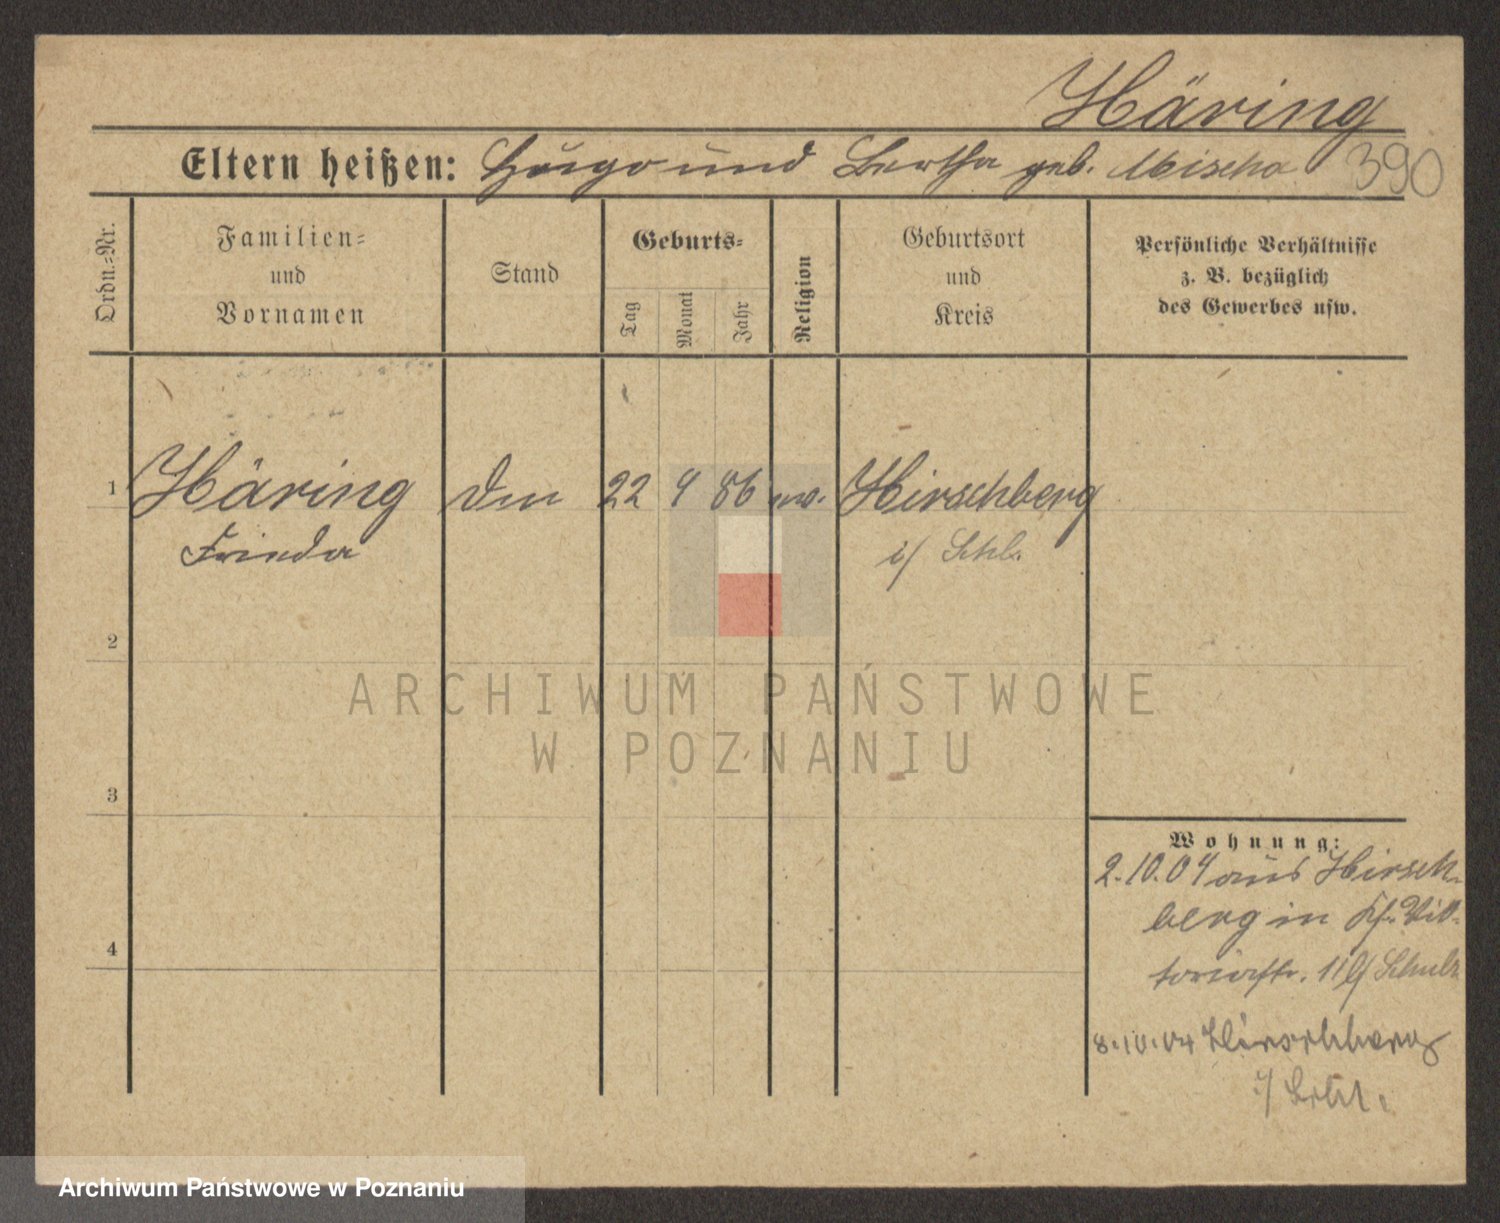 Häring
Eltern heißen: Hugo und Bertha geb. Mischa 390
Ordn.=Nr.
Familien=
und
Vornamen
Stand
Geburts=
Tag
Monat
Jahr
Religion
Geburtsort
und
Kreis
Persönliche Verhältnisse
z. B. bezüglich
des Gewerbes usw.
1 Häring 22 9 86 Hirschberg
Frieda i/ Schl.
2
3
4
Wohnung:
2.10.04 aus Hirsch-
berg in Vik-
toriastr. 11 b/ Schulz
8.10.04 Hirschberg
i/ Schl.
ARCHIWUM PAŃSTWOWE
W POZNANIU
Archiwum Państwowe w Poznaniu